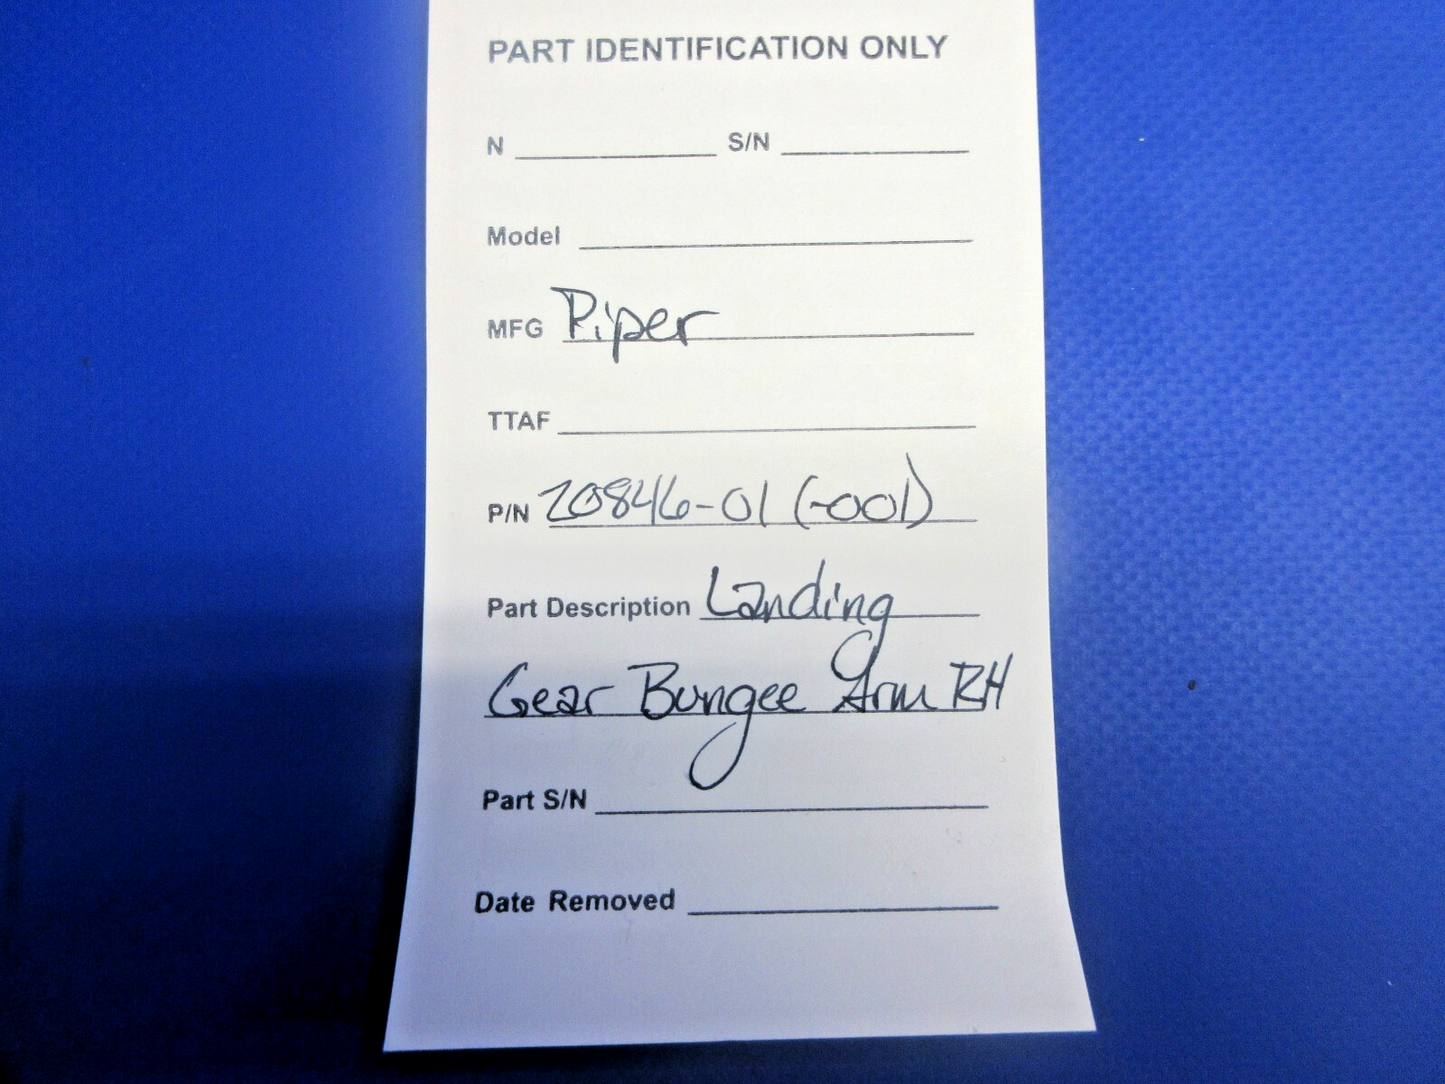 PART IDENTIFICATION ONLY
N S/N
Model
MFG Piper
TTAF
P/N 20846-01 (-001)
Part Description Landing
Gear Bungee Arm RH
Part S/N
Date Removed